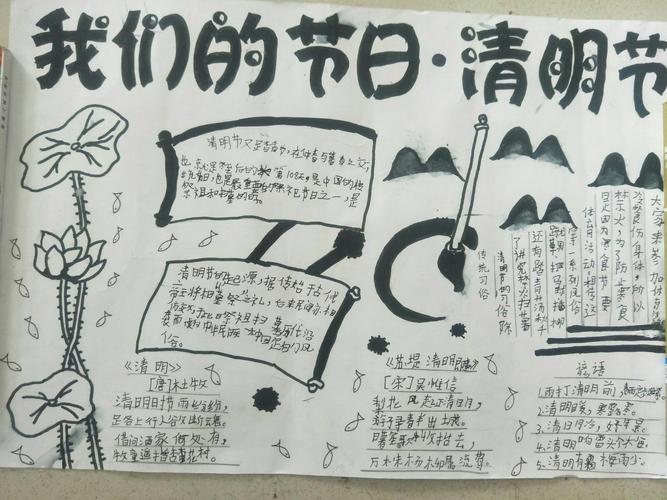 我们的节日·清明节
清明节又是踏青节，在仲春与暮春之交，
也就是冬至后的第108天。是中国的传
统节日，也是最重要的祭祀节日之一，是
祭祖和扫墓的日
清明节的起源，据传始于古代
帝王将相墓祭之礼，后来民间亦相
仿效于此日祭祖扫墓历代沿
袭而成为中华民族
俗。
传统习俗
清明节的习俗除
了讲究禁火扫墓
还有踏青荡秋千
蹴鞠打马球插柳
等一系列风俗
体育活动相传这
是因为寒食节要
禁火，为了防止寒食
冷餐伤身体，所以
大家来参加体育
《清明》
[唐]杜牧
清明日时节雨纷纷，
路上行人欲断魂。
借问酒家何处有，
牧童遥指杏花村。
《苏堤清明即事》
[宋]吴惟信
梨花风起正清明，
游子寻春半出城。
日暮笙歌收拾去，
万株杨柳属流莺。
谚语
1.雨打清明前，
2.清明暖，寒露寒。
3.清明冷，好年景。
4.清明响雷头个梅。
5.清明有霜梅雨少。